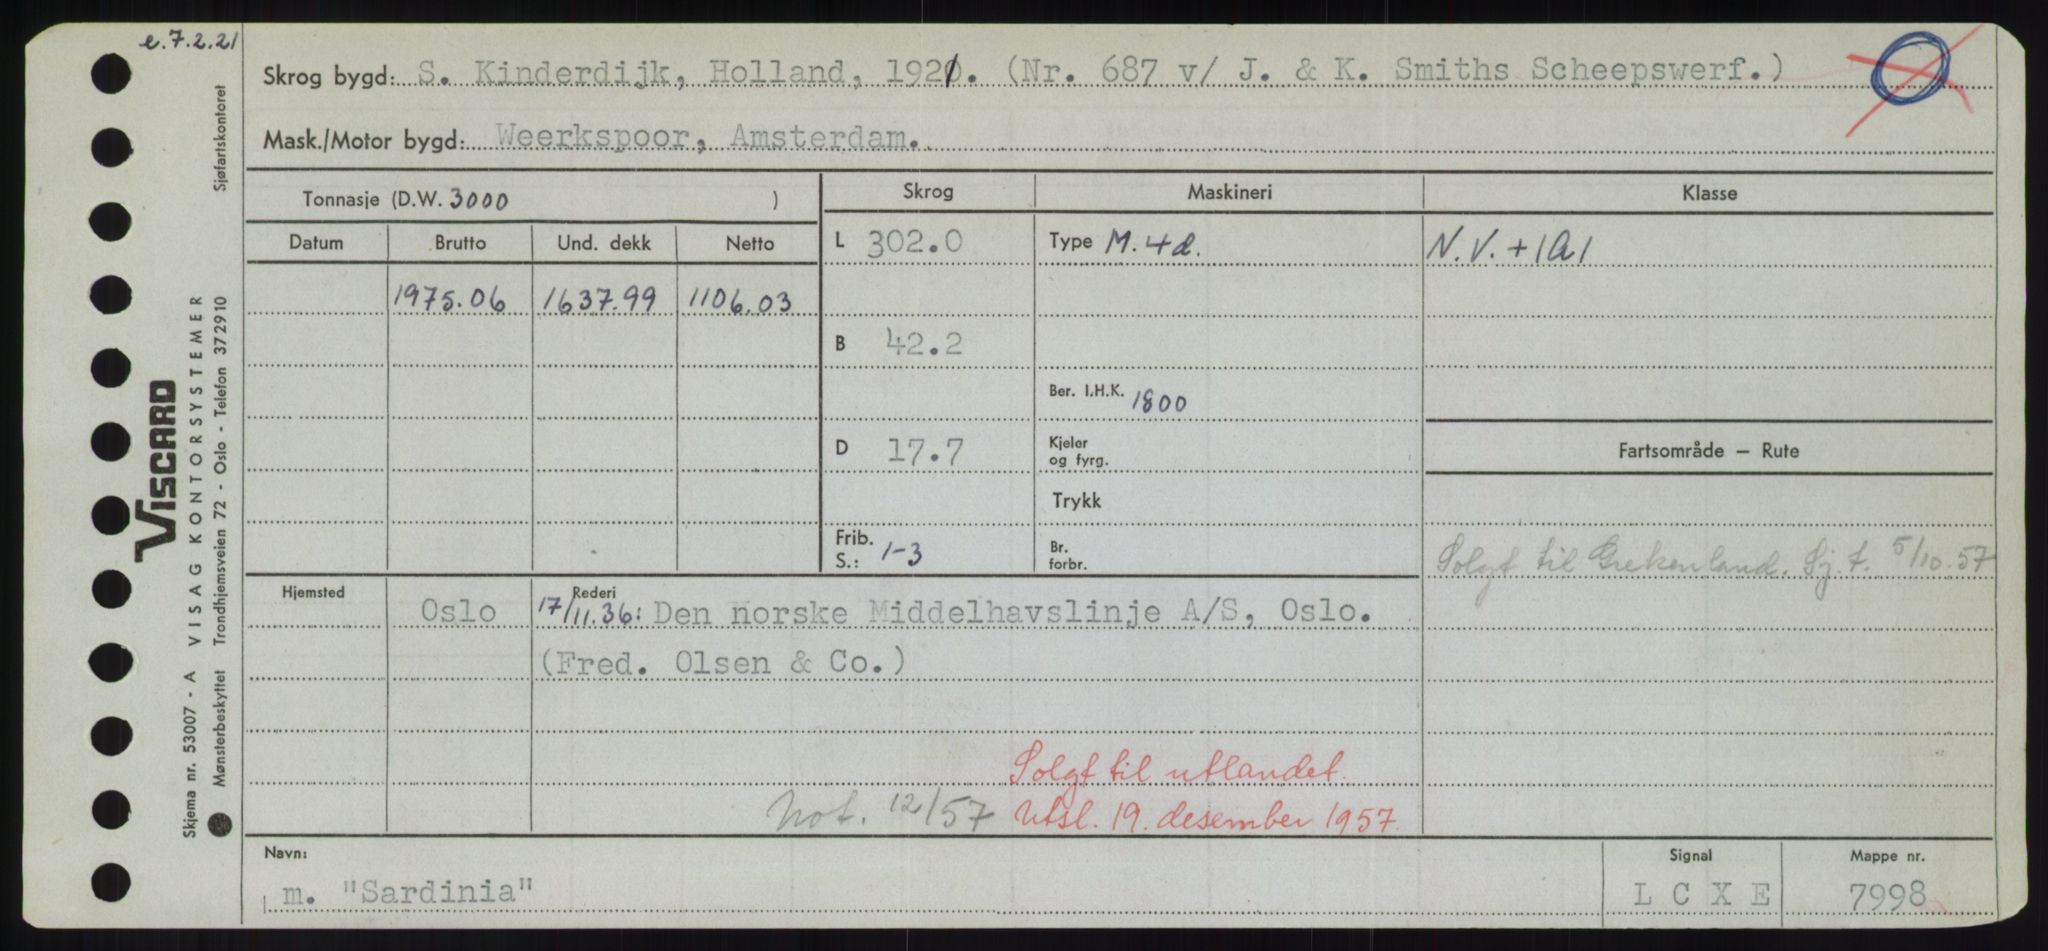 e.7.2.21
Skrog bygd: S. Kinderdijk, Holland, 1921. (Nr. 687 v/ J. & K. Smiths Scheepswerf.)
Mask./Motor bygd: Weerkspoor, Amsterdam.
Tonnasje (D.W. 3000 )
Skrog Maskineri Klasse
Datum Brutto Und. dekk Netto
L 302.0 Type M. 4d. N.V. + 1A1
1975.06 1637.99 1106.03
B 42.2
Ber. I.H.K. 1800
D 17.7 Kjeler
og fyrg.
Fartsområde — Rute
Trykk
Frib.
S.: 1-3 Br.
forbr.
Solgt til Grekenland. Sj.f. 5/10.57
Hjemsted Rederi
Oslo 17/11.36: Den norske Middelhavslinje A/S, Oslo.
(Fred. Olsen & Co.)
Solgt til utlandet.
Not. 12/57 Utsl. 19. desember 1957.
Navn: Signal Mappe nr.
m. "Sardinia" L C X E 7998
VISCARD
VISAG KONTORSYSTEMER
Skjema nr. 53007 - A
Mønsterbeskyttet Trondhjemsveien 72 - Oslo - Telefon 372910 Sjøfartskontoret